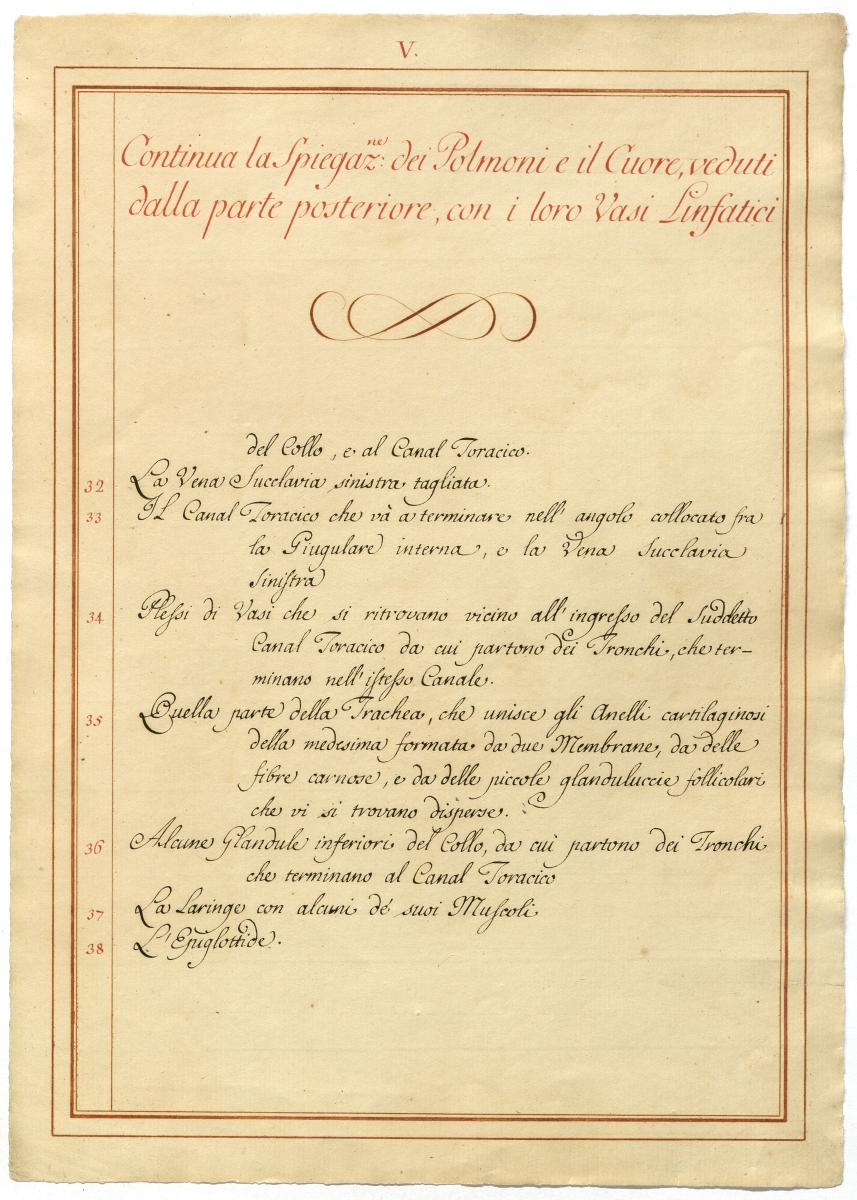 V.
Continua la Spiegaz:ne dei Polmoni e il Cuore, veduti
dalla parte posteriore, con i loro Vasi Linfatici
del Collo, e al Canal Toracico.
32 La Vena Succlavia sinistra tagliata.
33 Il Canal Toracico che và a terminare nell' angolo collocato fra
la Giugulare interna, e la Vena Succlavia
sinistra
34 Plessi di Vasi che si ritrovano vicino all' ingresso del Suddetto
Canal Toracico da cui partono dei Tronchi, che ter-
minano nell' istesso Canale.
35 Quella parte della Trachea, che unisce gli Anelli cartilaginosi
della medesima formata da due Membrane, da delle
fibre carnose, e da delle piccole glanduluccie follicolari
che vi si trovano disperse.
36 Alcune Glandule inferiori del Collo, da cui partono dei Tronchi
che terminano al Canal Toracico
37 La Laringe con alcuni de' suoi Muscoli
38 L'Epiglottide.